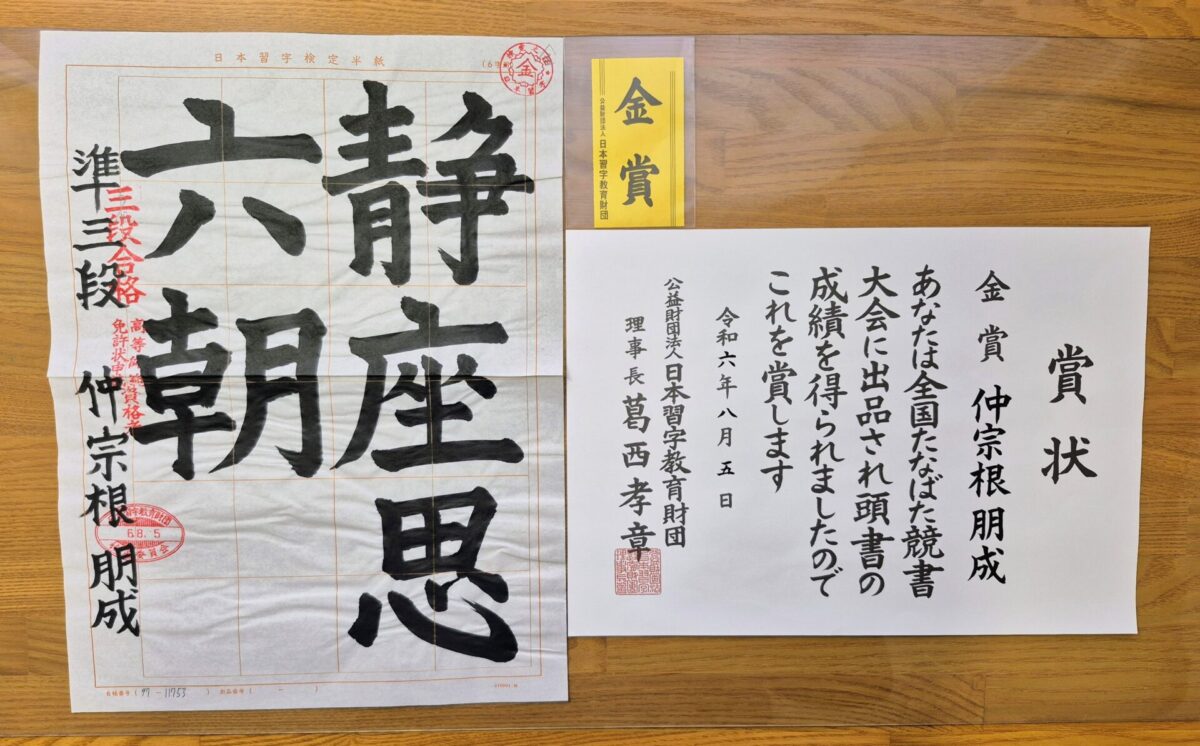 日本習字検定半紙
金
静座思
六朝
準三段 仲宗根 朋成
三段合格
68.5
77-11753
金賞
公益財団法人 日本習字教育財団
賞状
金賞 仲宗根朋成
あなたは全国たなばた競書
大会に出品され頭書の
成績を得られましたので
これを賞します
令和六年八月五日
公益財団法人 日本習字教育財団
理事長 葛西孝章